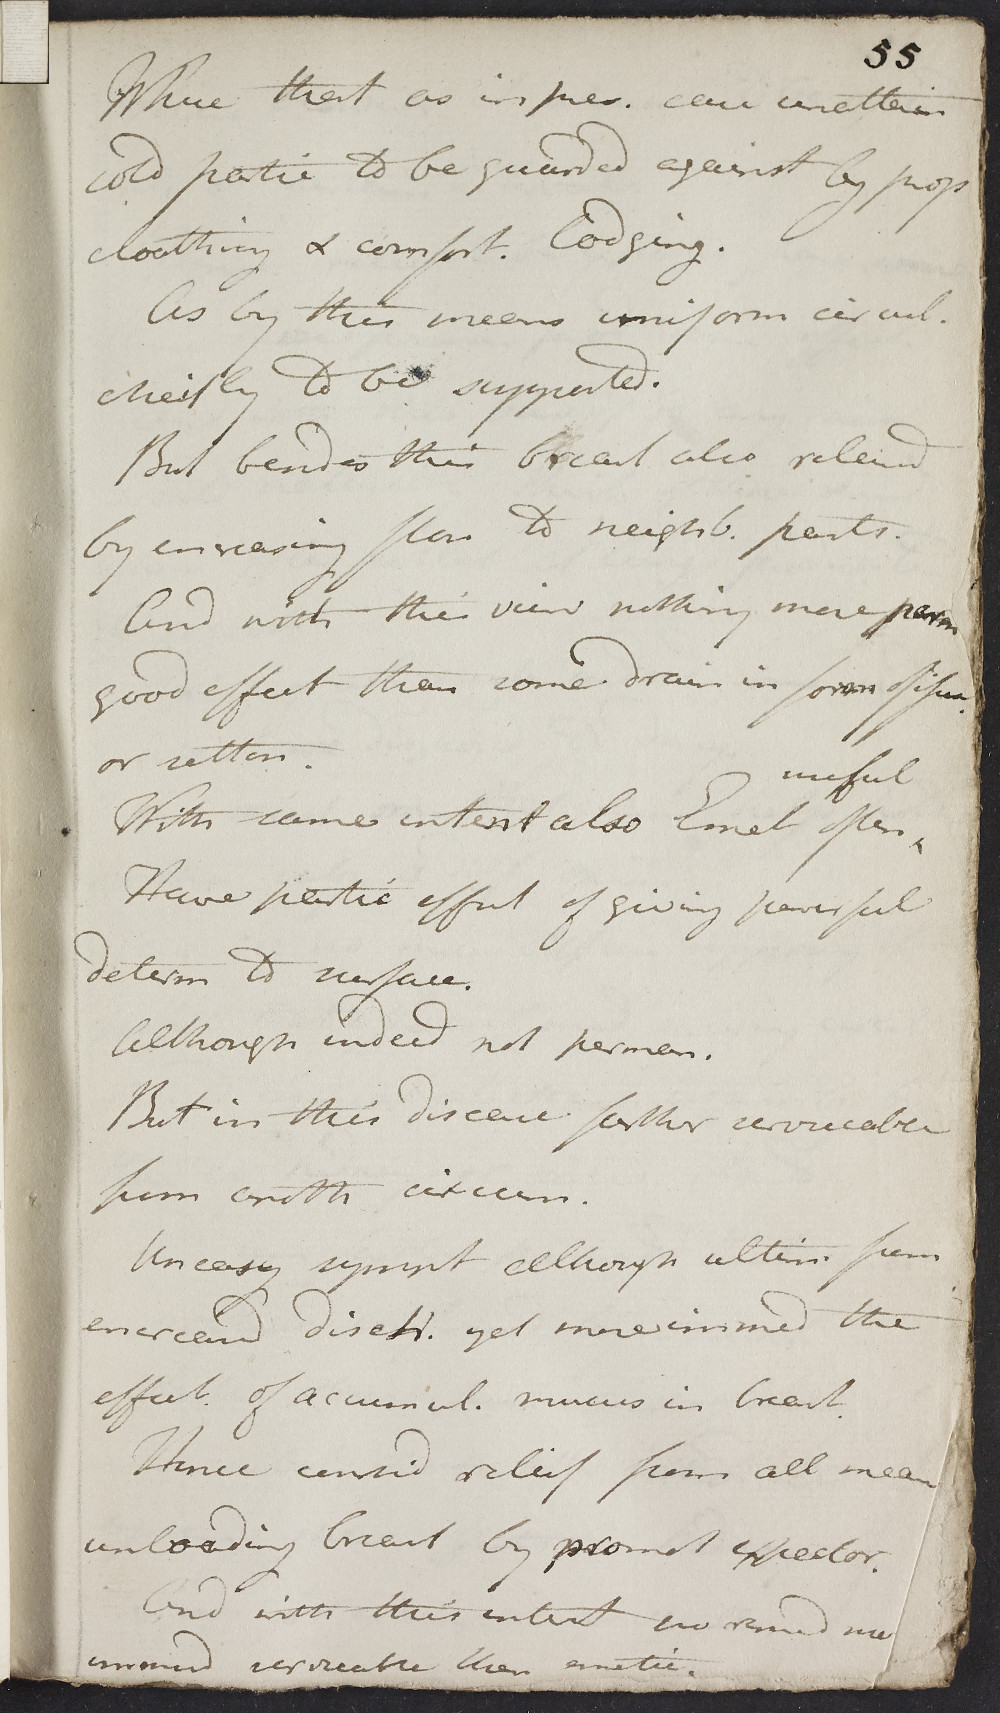 55
Where that as in prec. case unattain
cold partic to be guarded against by prop
cloathing & comfort. Lodging.
As by this means uniform circul.
cheifly to be supported.
But besides this breast also relievd
by encreasing flow to neighb. parts.
And with this view nothing more perm
good effect than some drain in form of issue
or setton.
useful
With same intent also Emet often
Have partic effect of giving powerful
determ to surface.
Although indeed not perman.
But in this disease farther serviceable
from anoth circum.
Uneasy sympt although ultim. from
encreasd disch. yet more immed the
effect. of accumul. mucus in breast.
Hence consid relief from all mean
unloading breast by promot expector.
And with this intent no remed mo
immed serviceable than emetic.